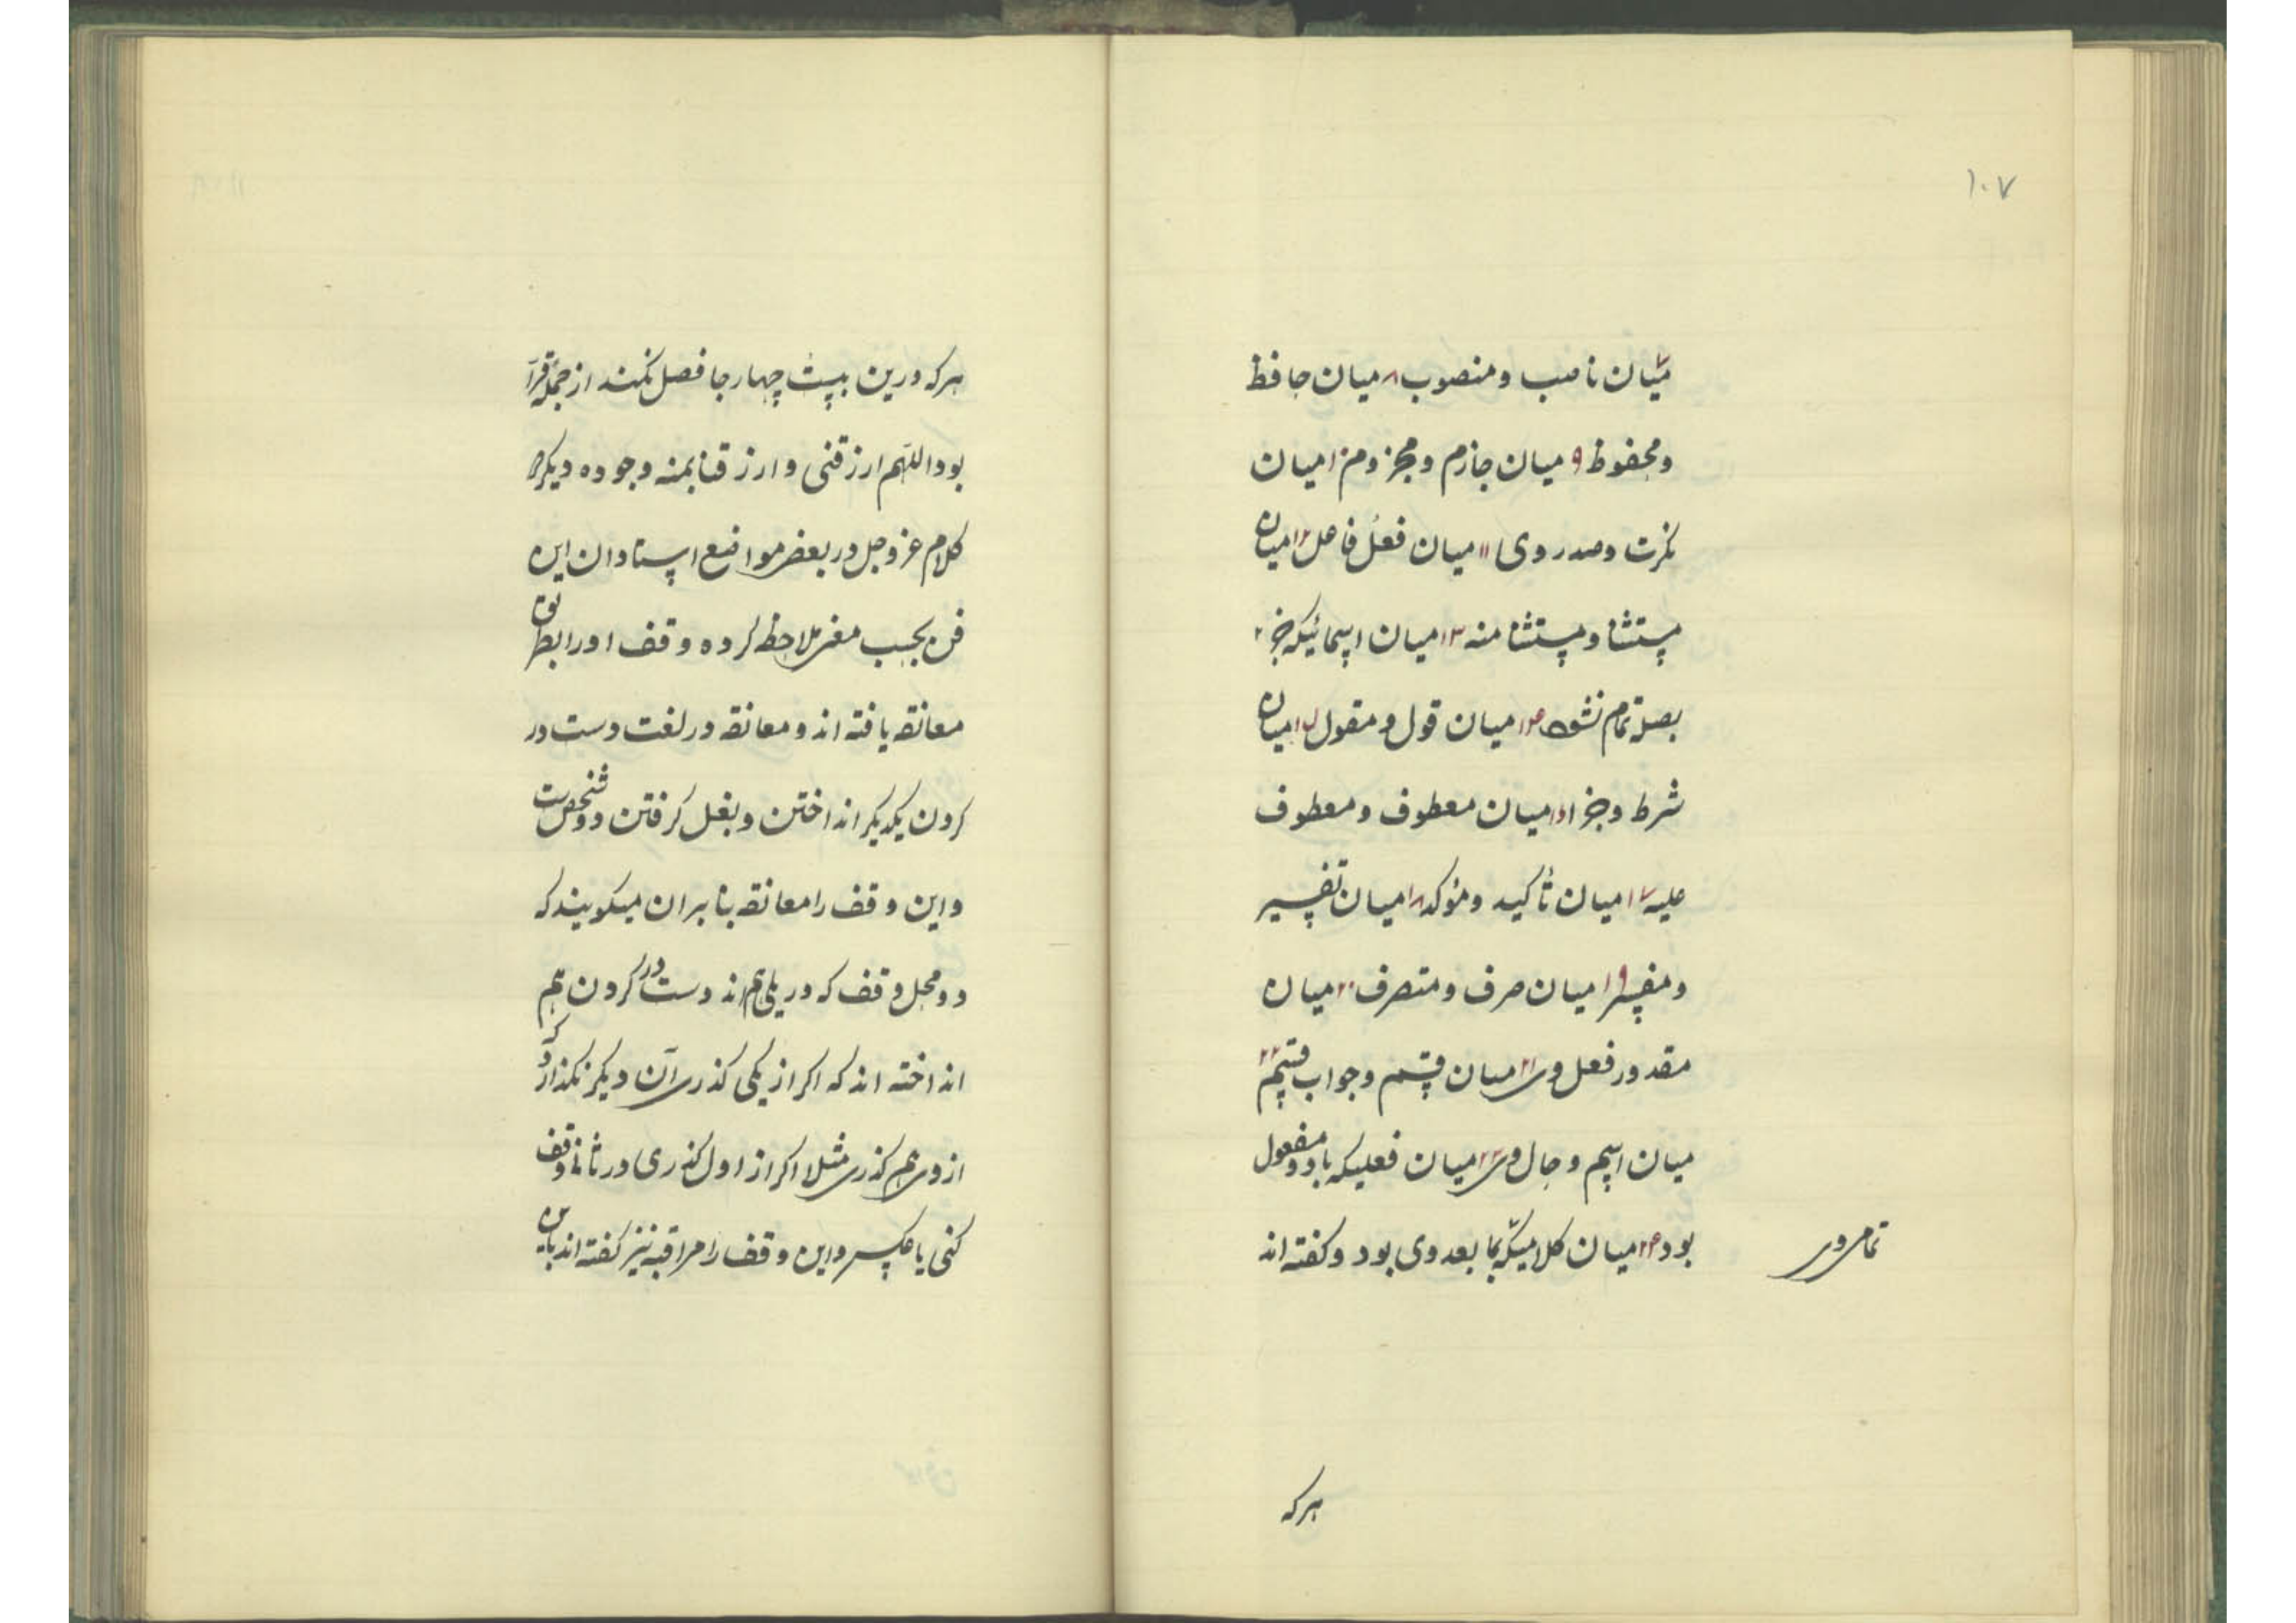 ۱۰۷
میان ناصب و منصوب ۸ میان حافظ
و محفوظ ۹ میان جازم و مجزوم ۱۰ میان
نکرت و صدر وی ۱۱ میان فعل فاعل ۱۲ میان
مستثنا و مستثنا منه ۱۳ میان اسمائیکه جز
بصله تمام نشود ۱۴ میان قول و مقول ۱۵ میان
شرط و جزا ۱۶ میان معطوف و معطوف
علیه ۱۷ میان تأکید و مؤکد ۱۸ میان تفسیر
و مفسر ۱۹ میان صرف و متصرف ۲۰ میان
مقدور فعل وی ۲۱ میان قسم و جواب قسم ۲۲
میان اسم و حال وی ۲۳ میان فعلیکه با دو مفعول
بود ۲۴ میان کلامیکه بما بعد وی بود و کفته اند
تمامی در
هرکه
هرکه درین بیست چهار جا فصل نکند از جمله قرآ
بود اللهم ارزقنی و ارزقنا بمنه وجوده دیکر
کلام عز وجل در بعضی مواضع استادان این
فن بحسب معنی ملاحظه کرده وقف او را بطریق
معانقه یافته اند و معانقه در لغت دست در
کردن یکدیکر انداختن و بغل کرفتن دو شخص است
و این وقف را معانقه بنا بر ان میکویند که
دو محل وقف که در پی هم اند دست در کردن هم
انداخته اند که اکر از یکی کذری آن دیکر نکذارد که
از وی هم کذری مثلا اکر از اول کذری در ثانی وقف
کنی یا عکس و این وقف را مراقبه نیز کفته اند باین